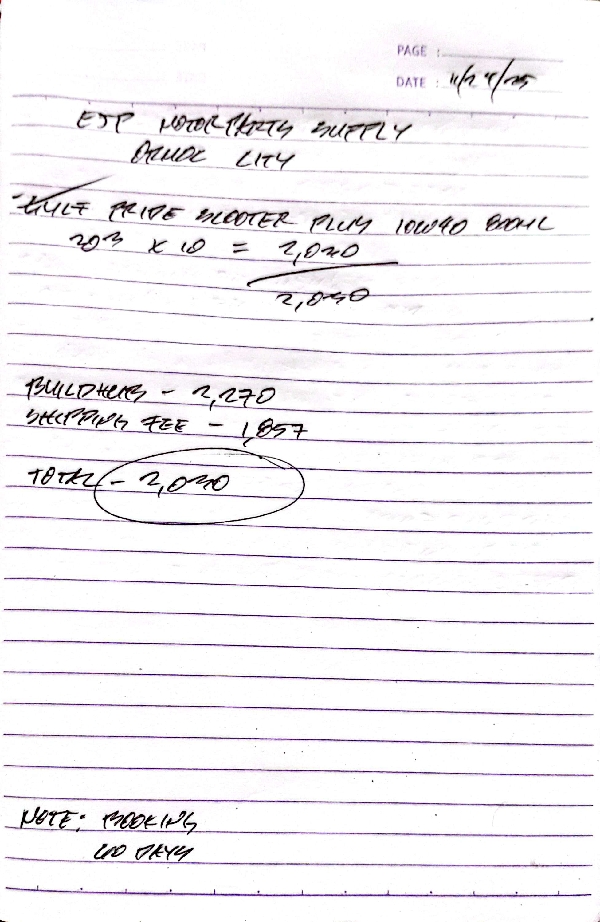 PAGE :
DATE : 11/24/25
EJP MOTORPARTS SUPPLY
ORMOC CITY
- GULF PRIDE SCOOTER PLUS 10W40 800ML
203 x 10 = 2,030
2,030
BUILDHUB - 2,270
SHIPPING FEE - 1,857
TOTAL - 2,030
NOTE: BOOKING
60 DAYS